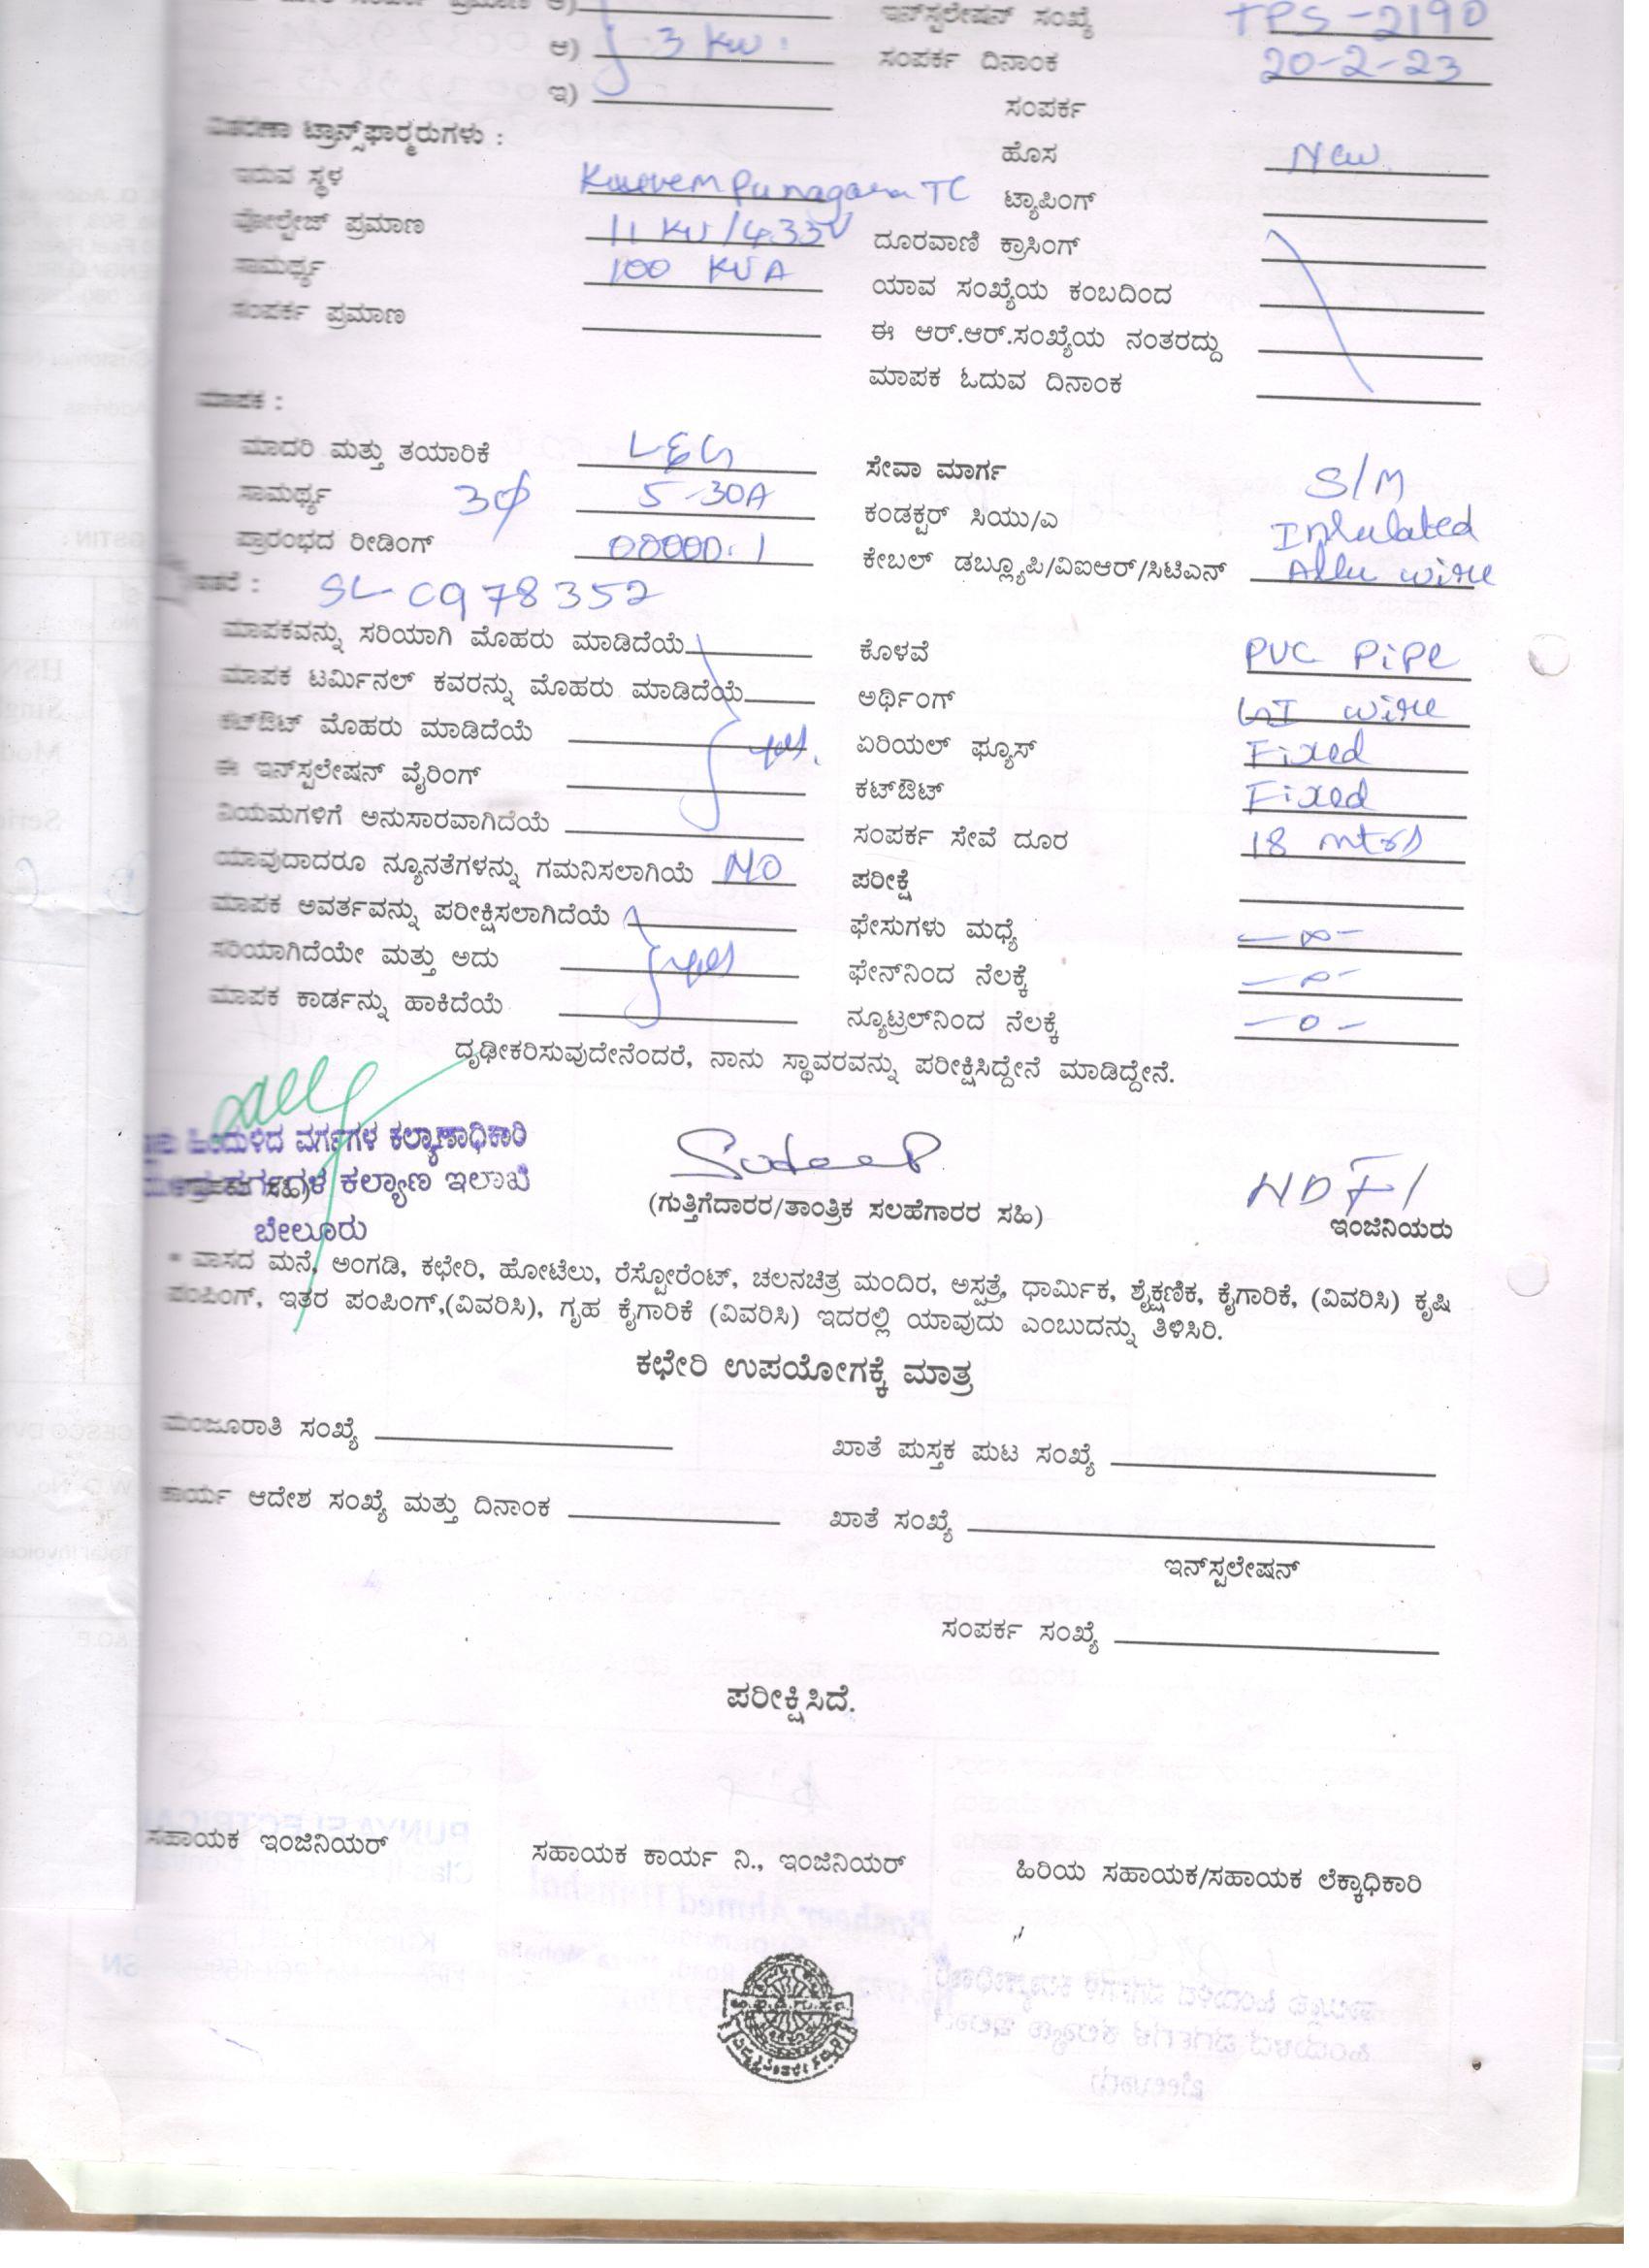 ಆ) 3 KW. ಇನ್‌ಸ್ಟಲೇಷನ್ ಸಂಖ್ಯೆ TPS-2190
ಇ) ಸಂಪರ್ಕ ದಿನಾಂಕ 20-2-23
ಸಂಪರ್ಕ
ವಿತರಣಾ ಟ್ರಾನ್ಸ್‌ಫಾರ್ಮರುಗಳು : ಹೊಸ New
ಇರುವ ಸ್ಥಳ Kuvempunagara TC ಟ್ಯಾಪಿಂಗ್
ವೋಲ್ಟೇಜ್ ಪ್ರಮಾಣ 11 KV/433V ದೂರವಾಣಿ ಕ್ರಾಸಿಂಗ್
ಸಾಮರ್ಥ್ಯ 100 KVA ಯಾವ ಸಂಖ್ಯೆಯ ಕಂಬದಿಂದ
ಸಂಪರ್ಕ ಪ್ರಮಾಣ ಈ ಆರ್.ಆರ್.ಸಂಖ್ಯೆಯ ನಂತರದ್ದು
ಮಾಪಕ ಓದುವ ದಿನಾಂಕ
ಮಾಪಕ :
ಮಾದರಿ ಮತ್ತು ತಯಾರಿಕೆ L&G ಸೇವಾ ಮಾರ್ಗ S/M
ಸಾಮರ್ಥ್ಯ 3φ 5-30A ಕಂಡಕ್ಟರ್ ಸಿಯು/ಎ Inhulated
ಪ್ರಾರಂಭದ ರೀಡಿಂಗ್ 00000.1 ಕೇಬಲ್ ಡಬ್ಲ್ಯೂಪಿ/ವಿಐಆರ್/ಸಿಟಿಎಸ್ Allu wire
ಇತರೆ : SL-C978352
ಮಾಪಕವನ್ನು ಸರಿಯಾಗಿ ಮೊಹರು ಮಾಡಿದೆಯೆ ಕೊಳವೆ PVC PiPe
ಮಾಪಕ ಟರ್ಮಿನಲ್ ಕವರನ್ನು ಮೊಹರು ಮಾಡಿದೆಯೆ ಅರ್ಥಿಂಗ್ GI wire
ಕಟ್‌ಔಟ್ ಮೊಹರು ಮಾಡಿದೆಯೆ yes. ಏರಿಯಲ್ ಫ್ಯೂಸ್ Fixed
ಈ ಇನ್‌ಸ್ಪಲೇಷನ್ ವೈರಿಂಗ್ ಕಟ್‌ಔಟ್ Fixed
ನಿಯಮಗಳಿಗೆ ಅನುಸಾರವಾಗಿದೆಯೆ ಸಂಪರ್ಕ ಸೇವೆ ದೂರ 18 mtrs
ಯಾವುದಾದರೂ ನ್ಯೂನತೆಗಳನ್ನು ಗಮನಿಸಲಾಗಿಯೆ NO ಪರೀಕ್ಷೆ
ಮಾಪಕ ಅವರ್ತವನ್ನು ಪರೀಕ್ಷಿಸಲಾಗಿದೆಯೆ ಫೇಸುಗಳು ಮಧ್ಯೆ —∞—
ಸರಿಯಾಗಿದೆಯೇ ಮತ್ತು ಅದು yes ಫೇಸ್‌ನಿಂದ ನೆಲಕ್ಕೆ
ಮಾಪಕ ಕಾರ್ಡನ್ನು ಹಾಕಿದೆಯೆ ನ್ಯೂಟ್ರಲ್‌ನಿಂದ ನೆಲಕ್ಕೆ —0—
ದೃಢೀಕರಿಸುವುದೇನೆಂದರೆ, ನಾನು ಸ್ಥಾವರವನ್ನು ಪರೀಕ್ಷಿಸಿದ್ದೇನೆ ಮಾಡಿದ್ದೇನೆ.
ಹಿಂದುಳಿದ ವರ್ಗಗಳ ಕಲ್ಯಾಣಾಧಿಕಾರಿ SudeeP
ವರ್ಗಗಳ ಕಲ್ಯಾಣ ಇಲಾಖೆ (ಗುತ್ತಿಗೆದಾರರ/ತಾಂತ್ರಿಕ ಸಲಹೆಗಾರರ ಸಹಿ) ಇಂಜಿನಿಯರು
ಬೇಲೂರು
* ವಾಸದ ಮನೆ, ಅಂಗಡಿ, ಕಛೇರಿ, ಹೋಟೆಲು, ರೆಸ್ಟೋರೆಂಟ್, ಚಲನಚಿತ್ರ ಮಂದಿರ, ಅಸ್ಪತ್ರೆ, ಧಾರ್ಮಿಕ, ಶೈಕ್ಷಣಿಕ, ಕೈಗಾರಿಕೆ, (ವಿವರಿಸಿ) ಕೃಷಿ
ಪಂಪಿಂಗ್, ಇತರ ಪಂಪಿಂಗ್,(ವಿವರಿಸಿ), ಗೃಹ ಕೈಗಾರಿಕೆ (ವಿವರಿಸಿ) ಇದರಲ್ಲಿ ಯಾವುದು ಎಂಬುದನ್ನು ತಿಳಿಸಿರಿ.
ಕಛೇರಿ ಉಪಯೋಗಕ್ಕೆ ಮಾತ್ರ
ಮಂಜೂರಾತಿ ಸಂಖ್ಯೆ ಖಾತೆ ಪುಸ್ತಕ ಪುಟ ಸಂಖ್ಯೆ
ಕಾರ್ಯ ಆದೇಶ ಸಂಖ್ಯೆ ಮತ್ತು ದಿನಾಂಕ ಖಾತೆ ಸಂಖ್ಯೆ
ಇನ್‌ಸ್ಪಲೇಷನ್
ಸಂಪರ್ಕ ಸಂಖ್ಯೆ
ಪರೀಕ್ಷಿಸಿದೆ.
ಸಹಾಯಕ ಇಂಜಿನಿಯರ್ ಸಹಾಯಕ ಕಾರ್ಯ ನಿ., ಇಂಜಿನಿಯರ್ ಹಿರಿಯ ಸಹಾಯಕ/ಸಹಾಯಕ ಲೆಕ್ಕಾಧಿಕಾರಿ